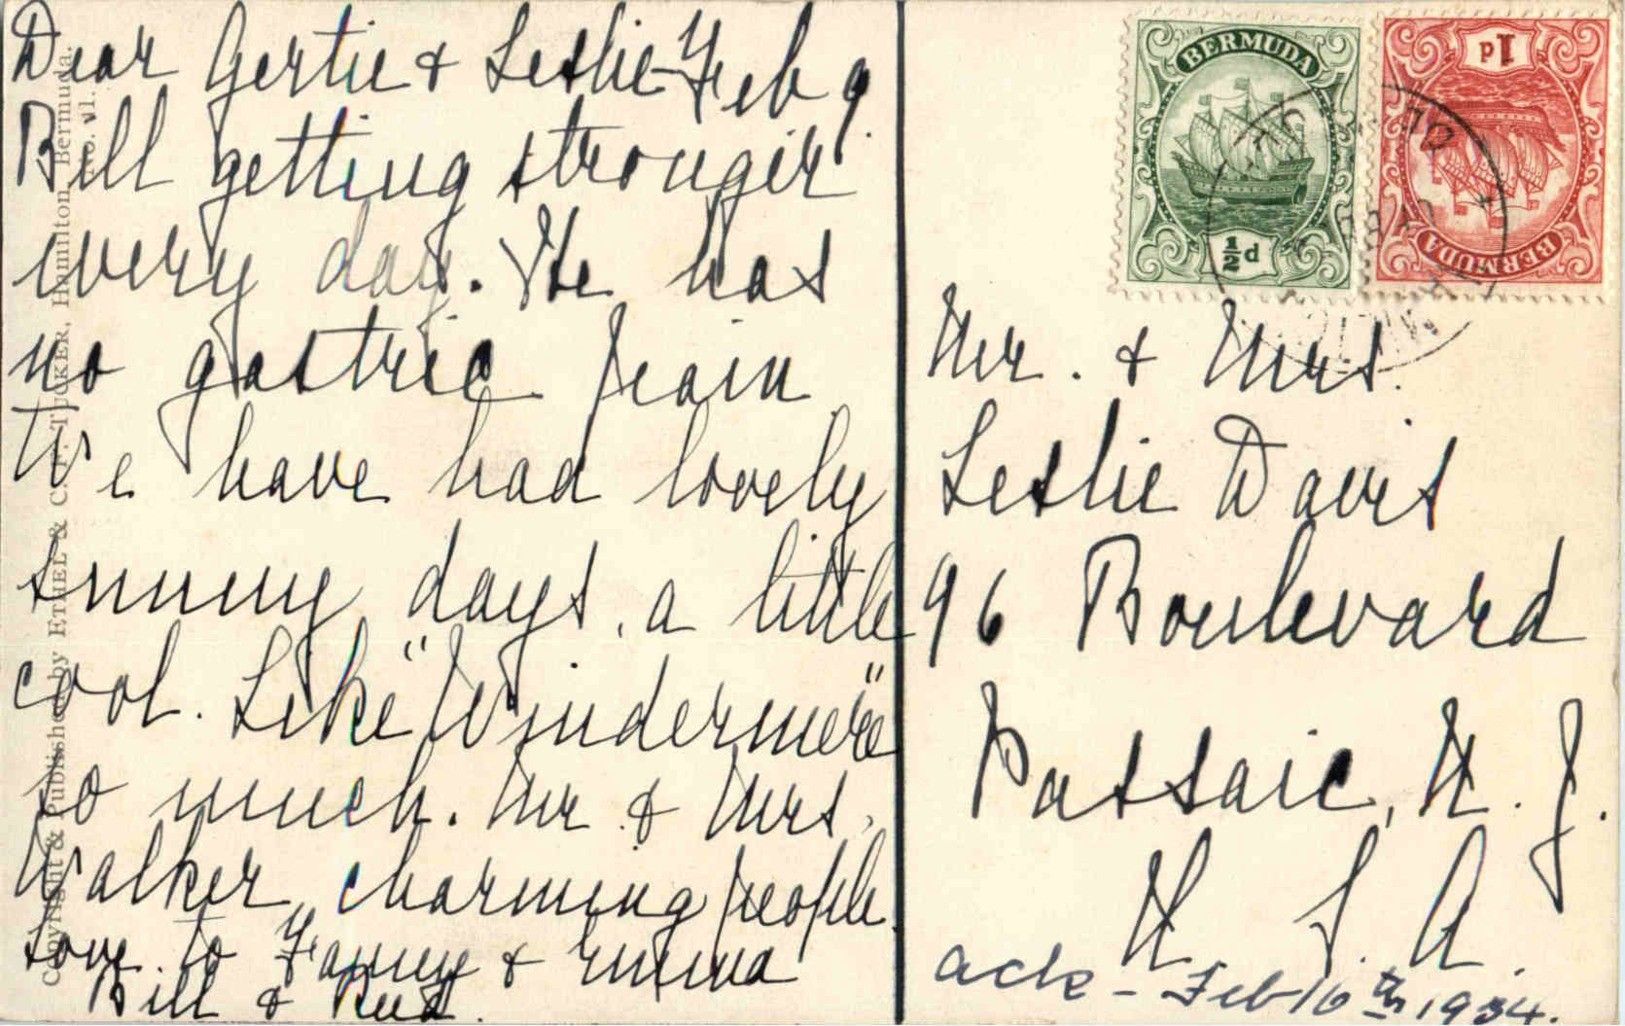 Dear Gertie & Leslie - Feb 9.
Bill getting stronger
every day. He has
no gastric pain
We have had lovely
sunny days, a little
cool. Like "Windermere"
so much. Mr & Mrs.
Walker, charming people.
Love to Fanny & Emma
Bill &
Copyright & Published by ETHEL & C. F. TUCKER, Hamilton, Bermuda.
No. 71.
BERMUDA
½d
1d
BERMUDA
Mr. & Mrs.
Leslie Davis
96 Boulevard
Passaic, N. J.
U. S. A.
ack - Feb 16th 1934.